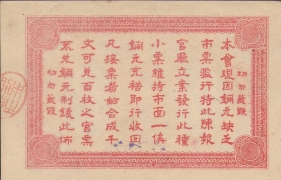 切勿裁毀
本會現因銅元缺乏
市票濫行特此陳報
官廳立案發行此種
小票維持市面一俟
銅元充裕即行收回
凡接票者如合成千
文可兌百枚之官票
兌銅元制錢此佈
切勿裁毀